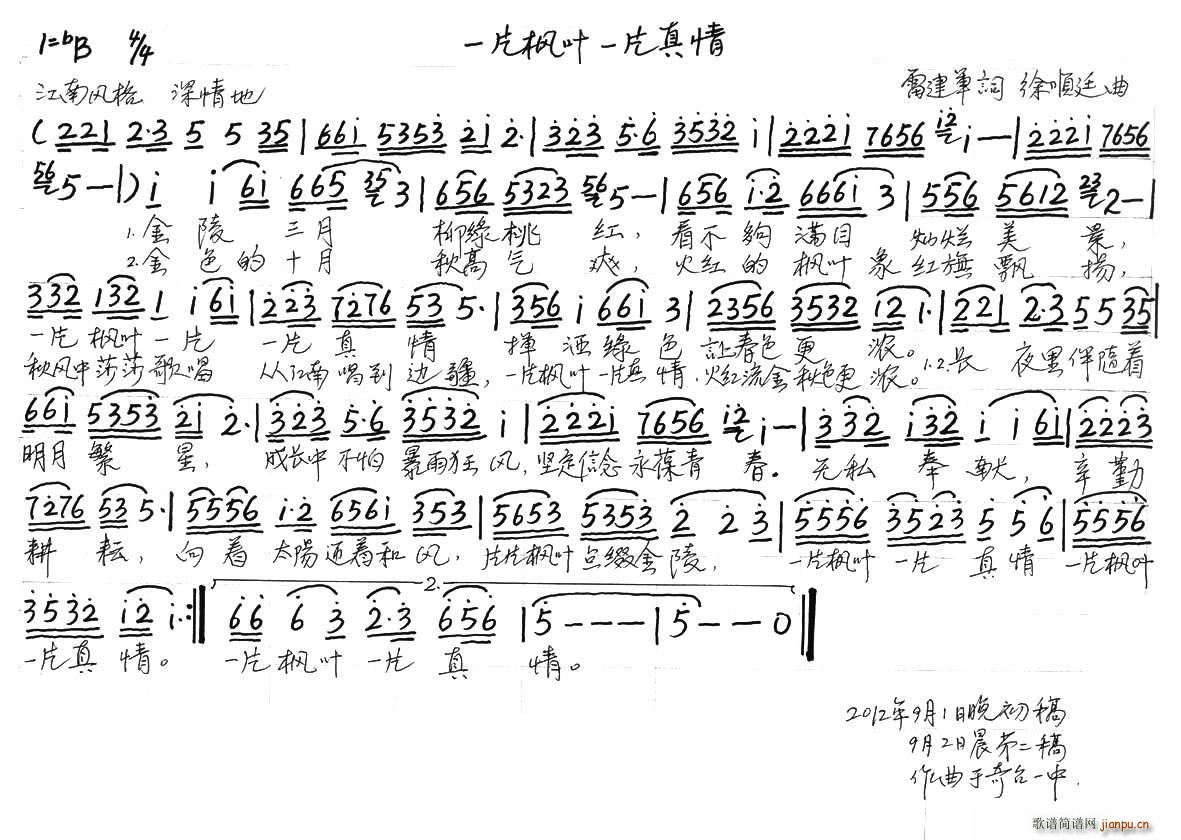 1=bB 4/4 一片枫叶 一片真情
江南风格 深情地 雷建军詞 徐順廷曲
( 221 2·3 5 5 35 | 66i 5353 2i 2· | 323 5·6 3532 i | 222i 7656 i2 i — — | 222i 7656
56 5 — | ) i i 6i 665 35 3 | 656 5323 56 5 — | 656 i·2 666i 3 | 556 5612 23 2 — |
1.金 陵 三月 柳綠桃 红, 看不夠 满目 灿烂 美 景,
2.金 色的十月 秋高气 爽, 火红的 枫叶 象红旗 飘 揚,
332 132 1 i 6i | 223 7276 53 5· | 356 i 66i 3 | 2356 3532 i2 i· | 221 2·3 5 5 35 |
一片 枫叶 一片 一片 真 情 揮 洒綠 色 让春色 更 浓。
秋风中莎莎歌唱 从江南唱到 边疆, 一片枫叶一片真 情,火红流金秋色更 浓。1.2.长 夜里伴随着
66i 5353 2i 2· | 323 5·6 3532 i | 222i 7656 i2 i — | 332 i32 i i 6i | 2223
明月 繁 星, 成长中 不怕 暴雨狂 风,坚定信念 永葆青 春。无私 奉 献, 辛勤
7276 53 5· | 5556 i·2 656i 353 | 5653 5353 2 2 3 | 5556 3523 5 5 6 | 5556
耕 耘, 向 着 太陽迎着和 风, 片片枫叶点缀金 陵, 一片枫叶 一片 真 情 一片枫叶
3532 i2 i· :‖ 2. 66 6 3 2·3 656 | 5 — — — | 5 — — 0 ‖
一片真 情。 一片 枫叶 一片 真 情。
2012年9月1日晚初稿
9月2日晨第二稿
作曲于奇台一中.
歌谱简谱网 jianpu.cn